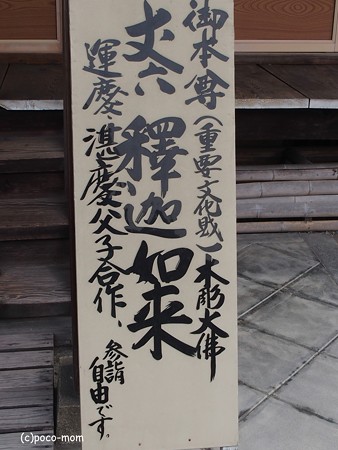 御本尊(重要文化財)木彫大佛
丈六 釋迦如来
運慶、湛慶父子合作、
参詣
自由です。
(c)poco-mom